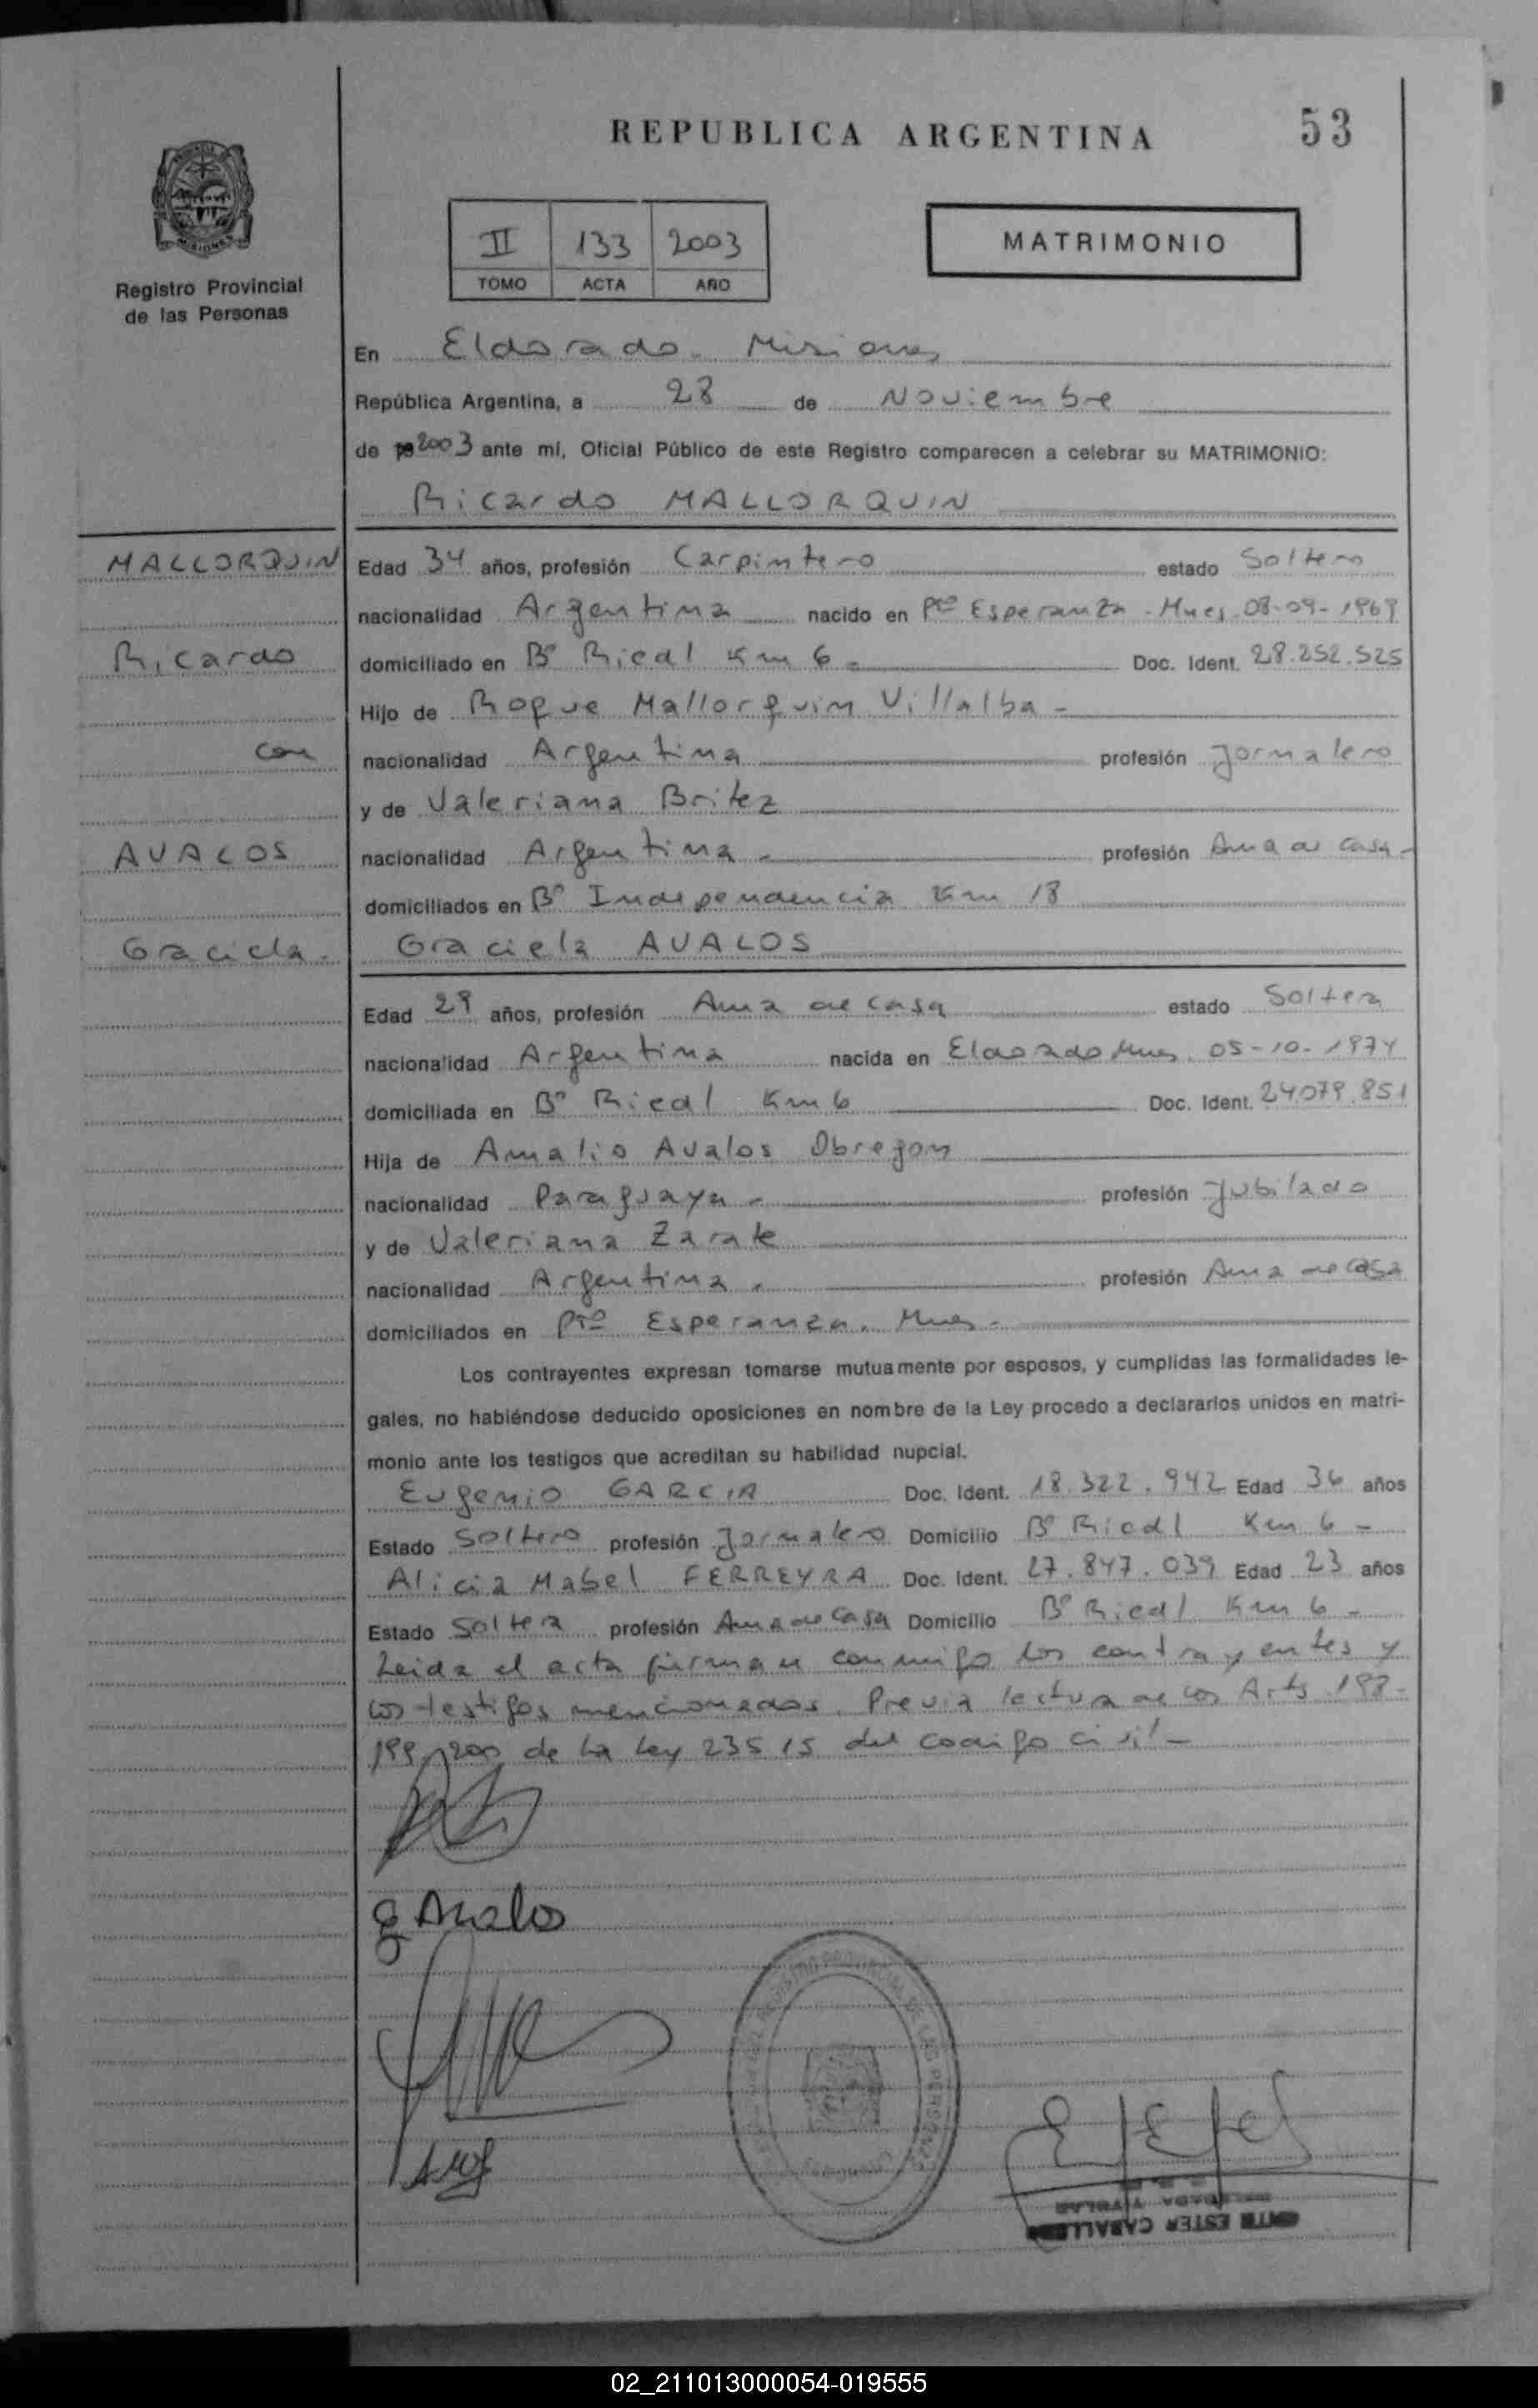 REPUBLICA ARGENTINA
53
II 133 2003
TOMO ACTA AÑO
MATRIMONIO
Registro Provincial
de las Personas
En Eldorado. Misiones
República Argentina, a 28 de Noviembre
de 2003 ante mí, Oficial Público de este Registro comparecen a celebrar su MATRIMONIO:
Ricardo MALLORQUIN
MALLORQUIN
Ricardo
con
AVALOS
Graciela.
Edad 34 años, profesión Carpintero estado Soltero
nacionalidad Argentina nacido en Pto Esperanza. Mnes. 08-09-1969
domiciliado en Bº Riedl Km 6. Doc. Ident. 28.252.525
Hijo de Roque Mallorquin Villalba -
nacionalidad Argentina profesión Jornalero
y de Valeriana Britez
nacionalidad Argentina - profesión Ama de casa -
domiciliados en Bº Independencia Km 18
Graciela AVALOS
Edad 29 años, profesión Ama de casa estado Soltera
nacionalidad Argentina nacida en Eldorado Mnes. 05-10-1974
domiciliada en Bº Riedl Km 6 Doc. Ident. 24.079.851
Hija de Amalio Avalos Obregon
nacionalidad Paraguaya - profesión Jubilado
y de Valeriana Zarate
nacionalidad Argentina. profesión Ama de casa
domiciliados en Pto Esperanza. Mnes.
Los contrayentes expresan tomarse mutuamente por esposos, y cumplidas las formalidades le-
gales, no habiéndose deducido oposiciones en nombre de la Ley procedo a declararlos unidos en matri-
monio ante los testigos que acreditan su habilidad nupcial.
Eugenio GARCIA Doc. Ident. 18.322.942 Edad 36 años
Estado Soltero profesión Jornalero Domicilio Bº Riedl Km 6 -
Alicia Mabel FERREYRA Doc. Ident. 27.847.039 Edad 23 años
Estado Soltera profesión Ama de Casa Domicilio Bº Riedl Km 6 -
Leida el acta firman conmigo los contrayentes y
los testigos mencionados. Previa lectura de los Arts 198-
199 y 200 de la Ley 23515 del codigo civil -
g Avalos
ESTER CABALLERO
02_211013000054-019555